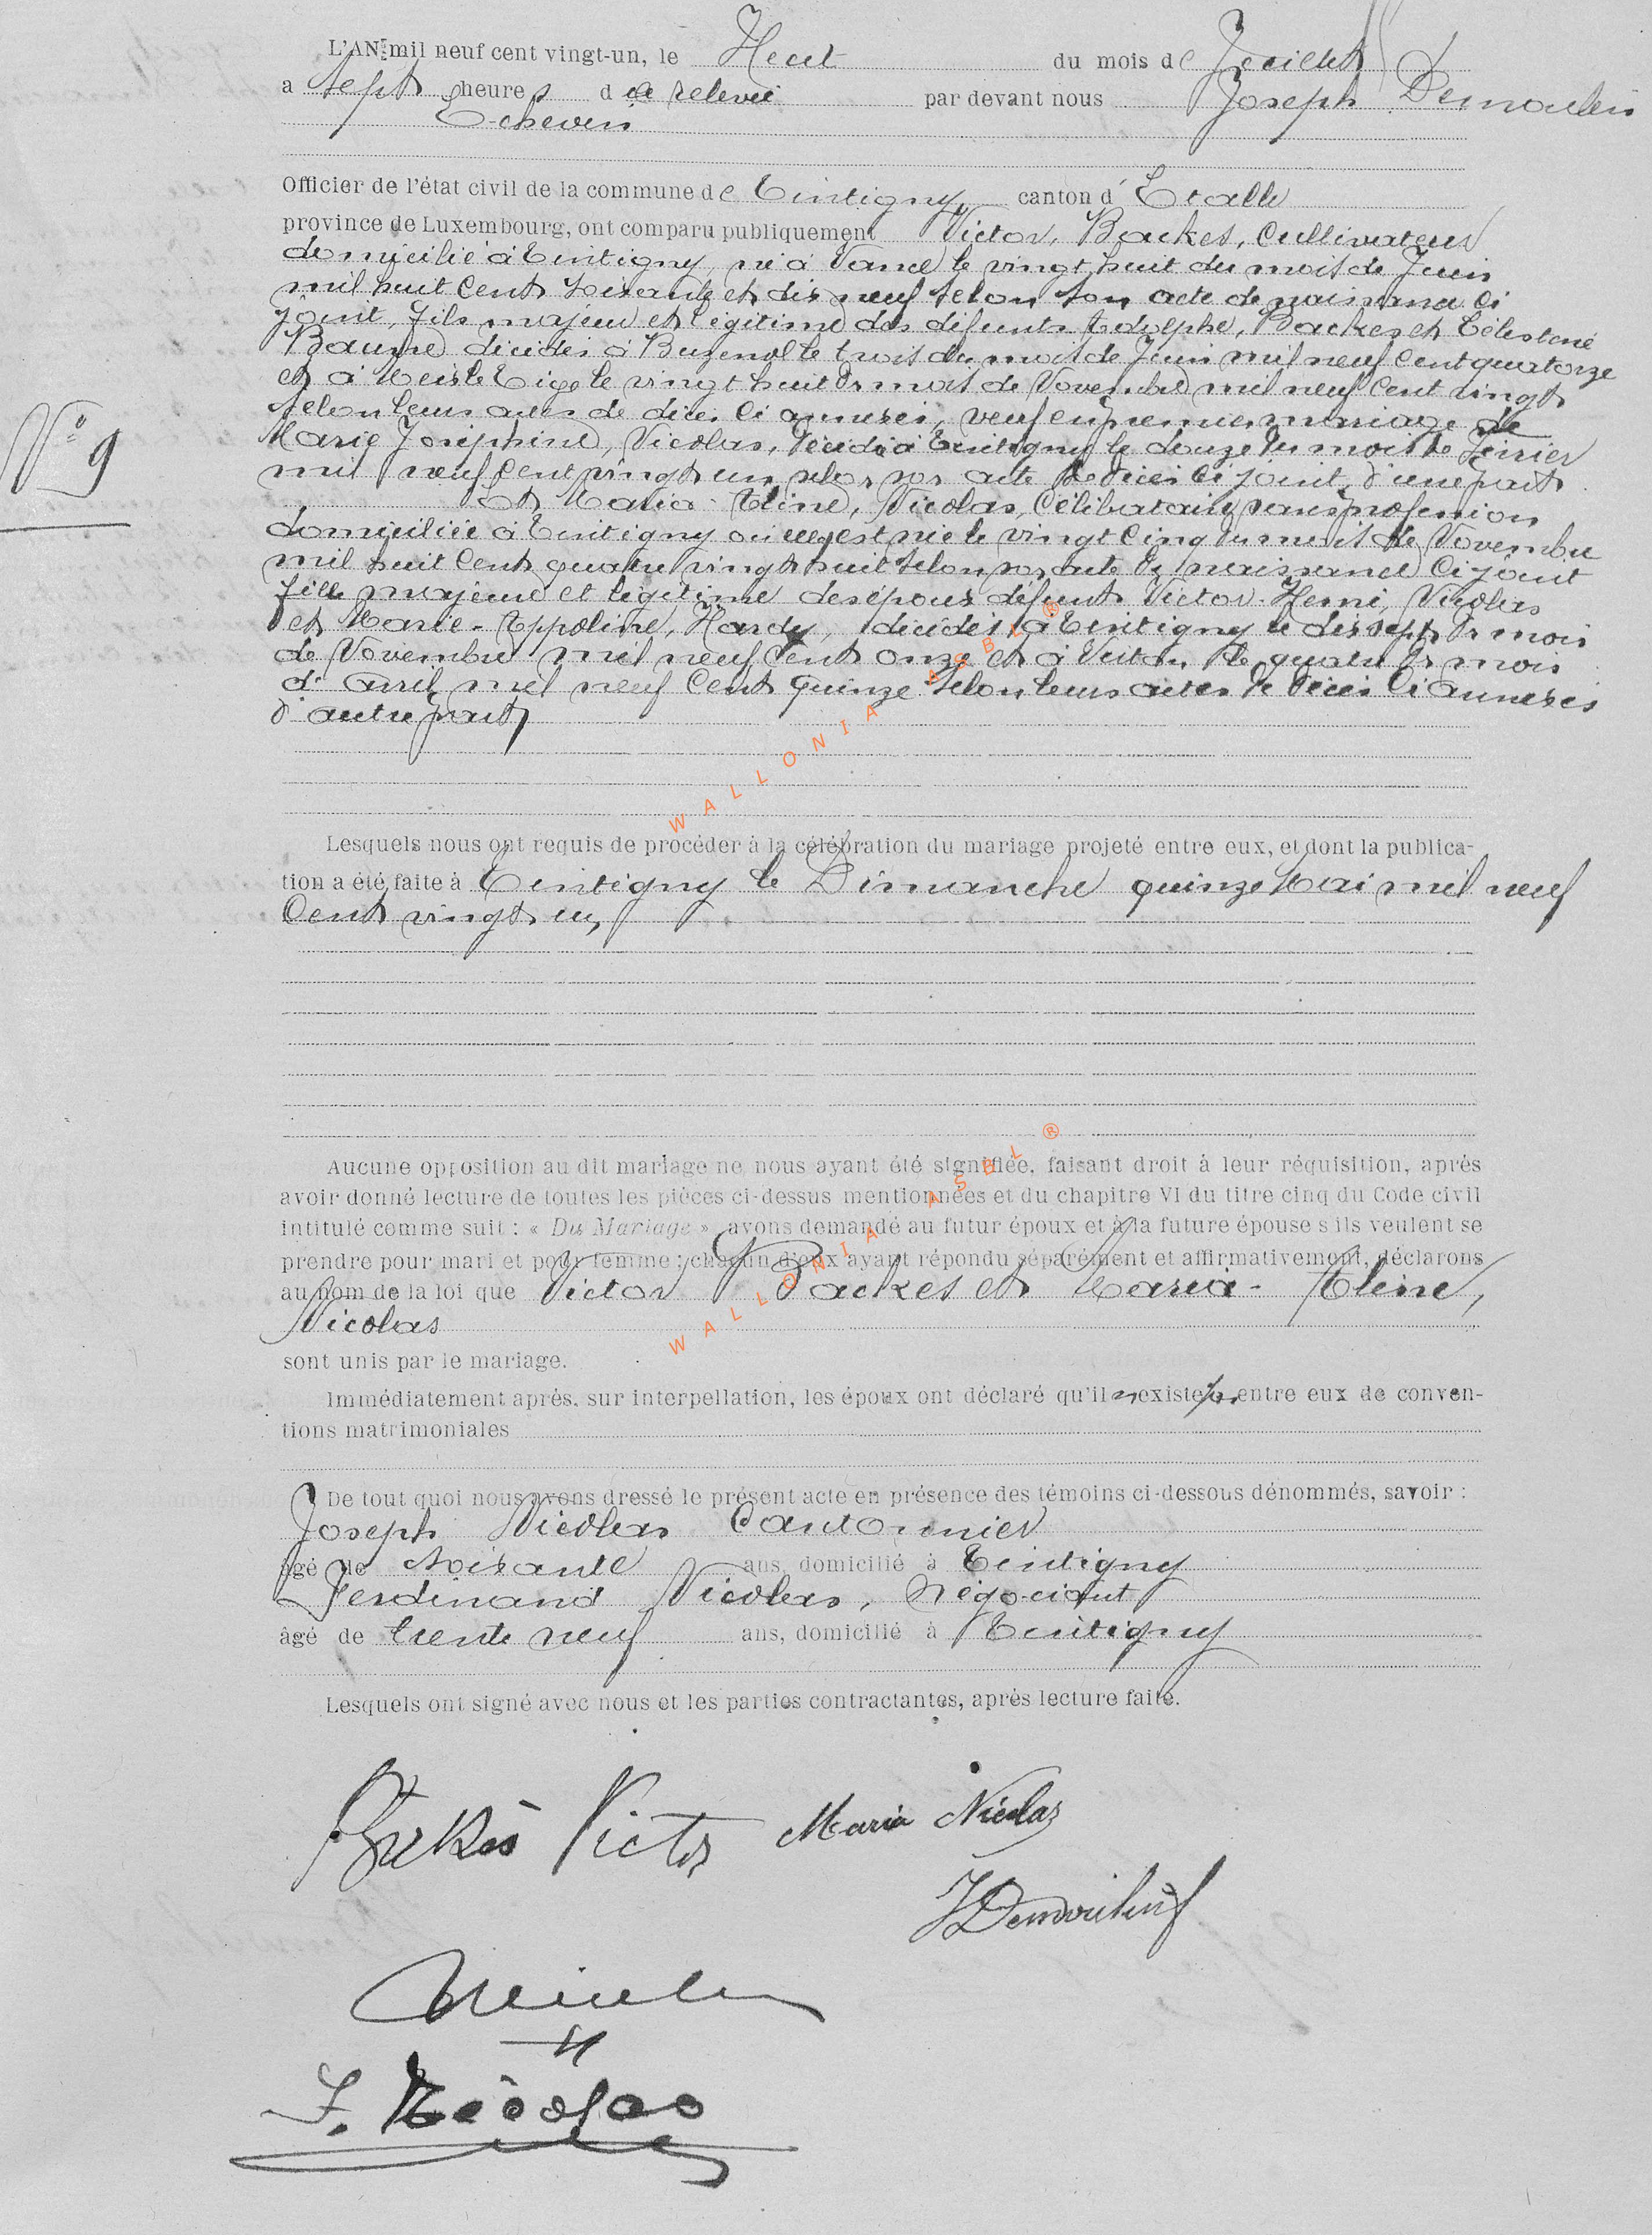 L'AN mil neuf cent vingt-un, le Huit du mois de Juillet
a sept heures de relevée par devant nous Joseph Demoulin
Echevin
Officier de l'état civil de la commune de Tintigny, canton d'Etalle
province de Luxembourg, ont comparu publiquement Victor, Backes, Cultivateur
domicilié à Tintigny, né à Vance le vingt huit du mois de Juin
mil huit Cent soixante et dix neuf selon son acte de naissance ci
joint, fils majeur et légitime des défunts Adolphe, Backes et Célestine
Baume décédés à Buzenol le trois du mois de Juin mil neuf Cent quatorze
et à Meix le Tige le vingt huit du mois de Novembre mil neuf Cent vingt
selon leurs actes de décès ci annexés, veuf en premier mariage de
Marie Joséphine, Nicolas, décédée à Tintigny le douze du mois de Février
mil neuf Cent vingt un selon son acte de décès ci joint, d'une part
Et Maria-Aline, Nicolas, Célibataire sans profession
domiciliée à Tintigny où elle est née le vingt Cinq du mois de Novembre
mil huit Cent quatre vingt huit selon son acte de naissance ci joint
fille majeure et légitime des époux défunts Victor-Henri, Nicolas
et Marie-Appoline, Hardy, décédés à Tintigny le dix sept du mois
de Novembre mil neuf Cent onze et à Virton le quatre du mois
d'avril mil neuf Cent quinze selon leurs actes de décès ci annexés
d'autre part
N° 9
Lesquels nous ont requis de procéder à la célébration du mariage projeté entre eux, et dont la publica-
tion a été faite à Tintigny le Dimanche quinze Mai mil neuf
Cent vingt un
Aucune opposition au dit mariage ne nous ayant été signifiée, faisant droit à leur réquisition, après
avoir donné lecture de toutes les pièces ci-dessus mentionnées et du chapitre VI du titre cinq du Code civil
intitulé comme suit : « Du Mariage » avons demandé au futur époux et à la future épouse s'ils veulent se
prendre pour mari et pour femme ; chacun d'eux ayant répondu séparément et affirmativement, déclarons
au nom de la loi que Victor Backes et Maria-Aline,
Nicolas
sont unis par le mariage.
Immédiatement après, sur interpellation, les époux ont déclaré qu'il n'existe pas entre eux de conven-
tions matrimoniales
De tout quoi nous avons dressé le présent acte en présence des témoins ci-dessous dénommés, savoir :
Joseph Nicolas Cantonnier
âgé de soixante ans, domicilié à Tintigny
Ferdinand Nicolas, négociant
âgé de trente neuf ans, domicilié à Tintigny
Lesquels ont signé avec nous et les parties contractantes, après lecture faite.
Victor Maria Nicolas
JDemoulin
Nicolas
F. Nicolas
WALLONIA ASBL ®
WALLONIA ASBL ®